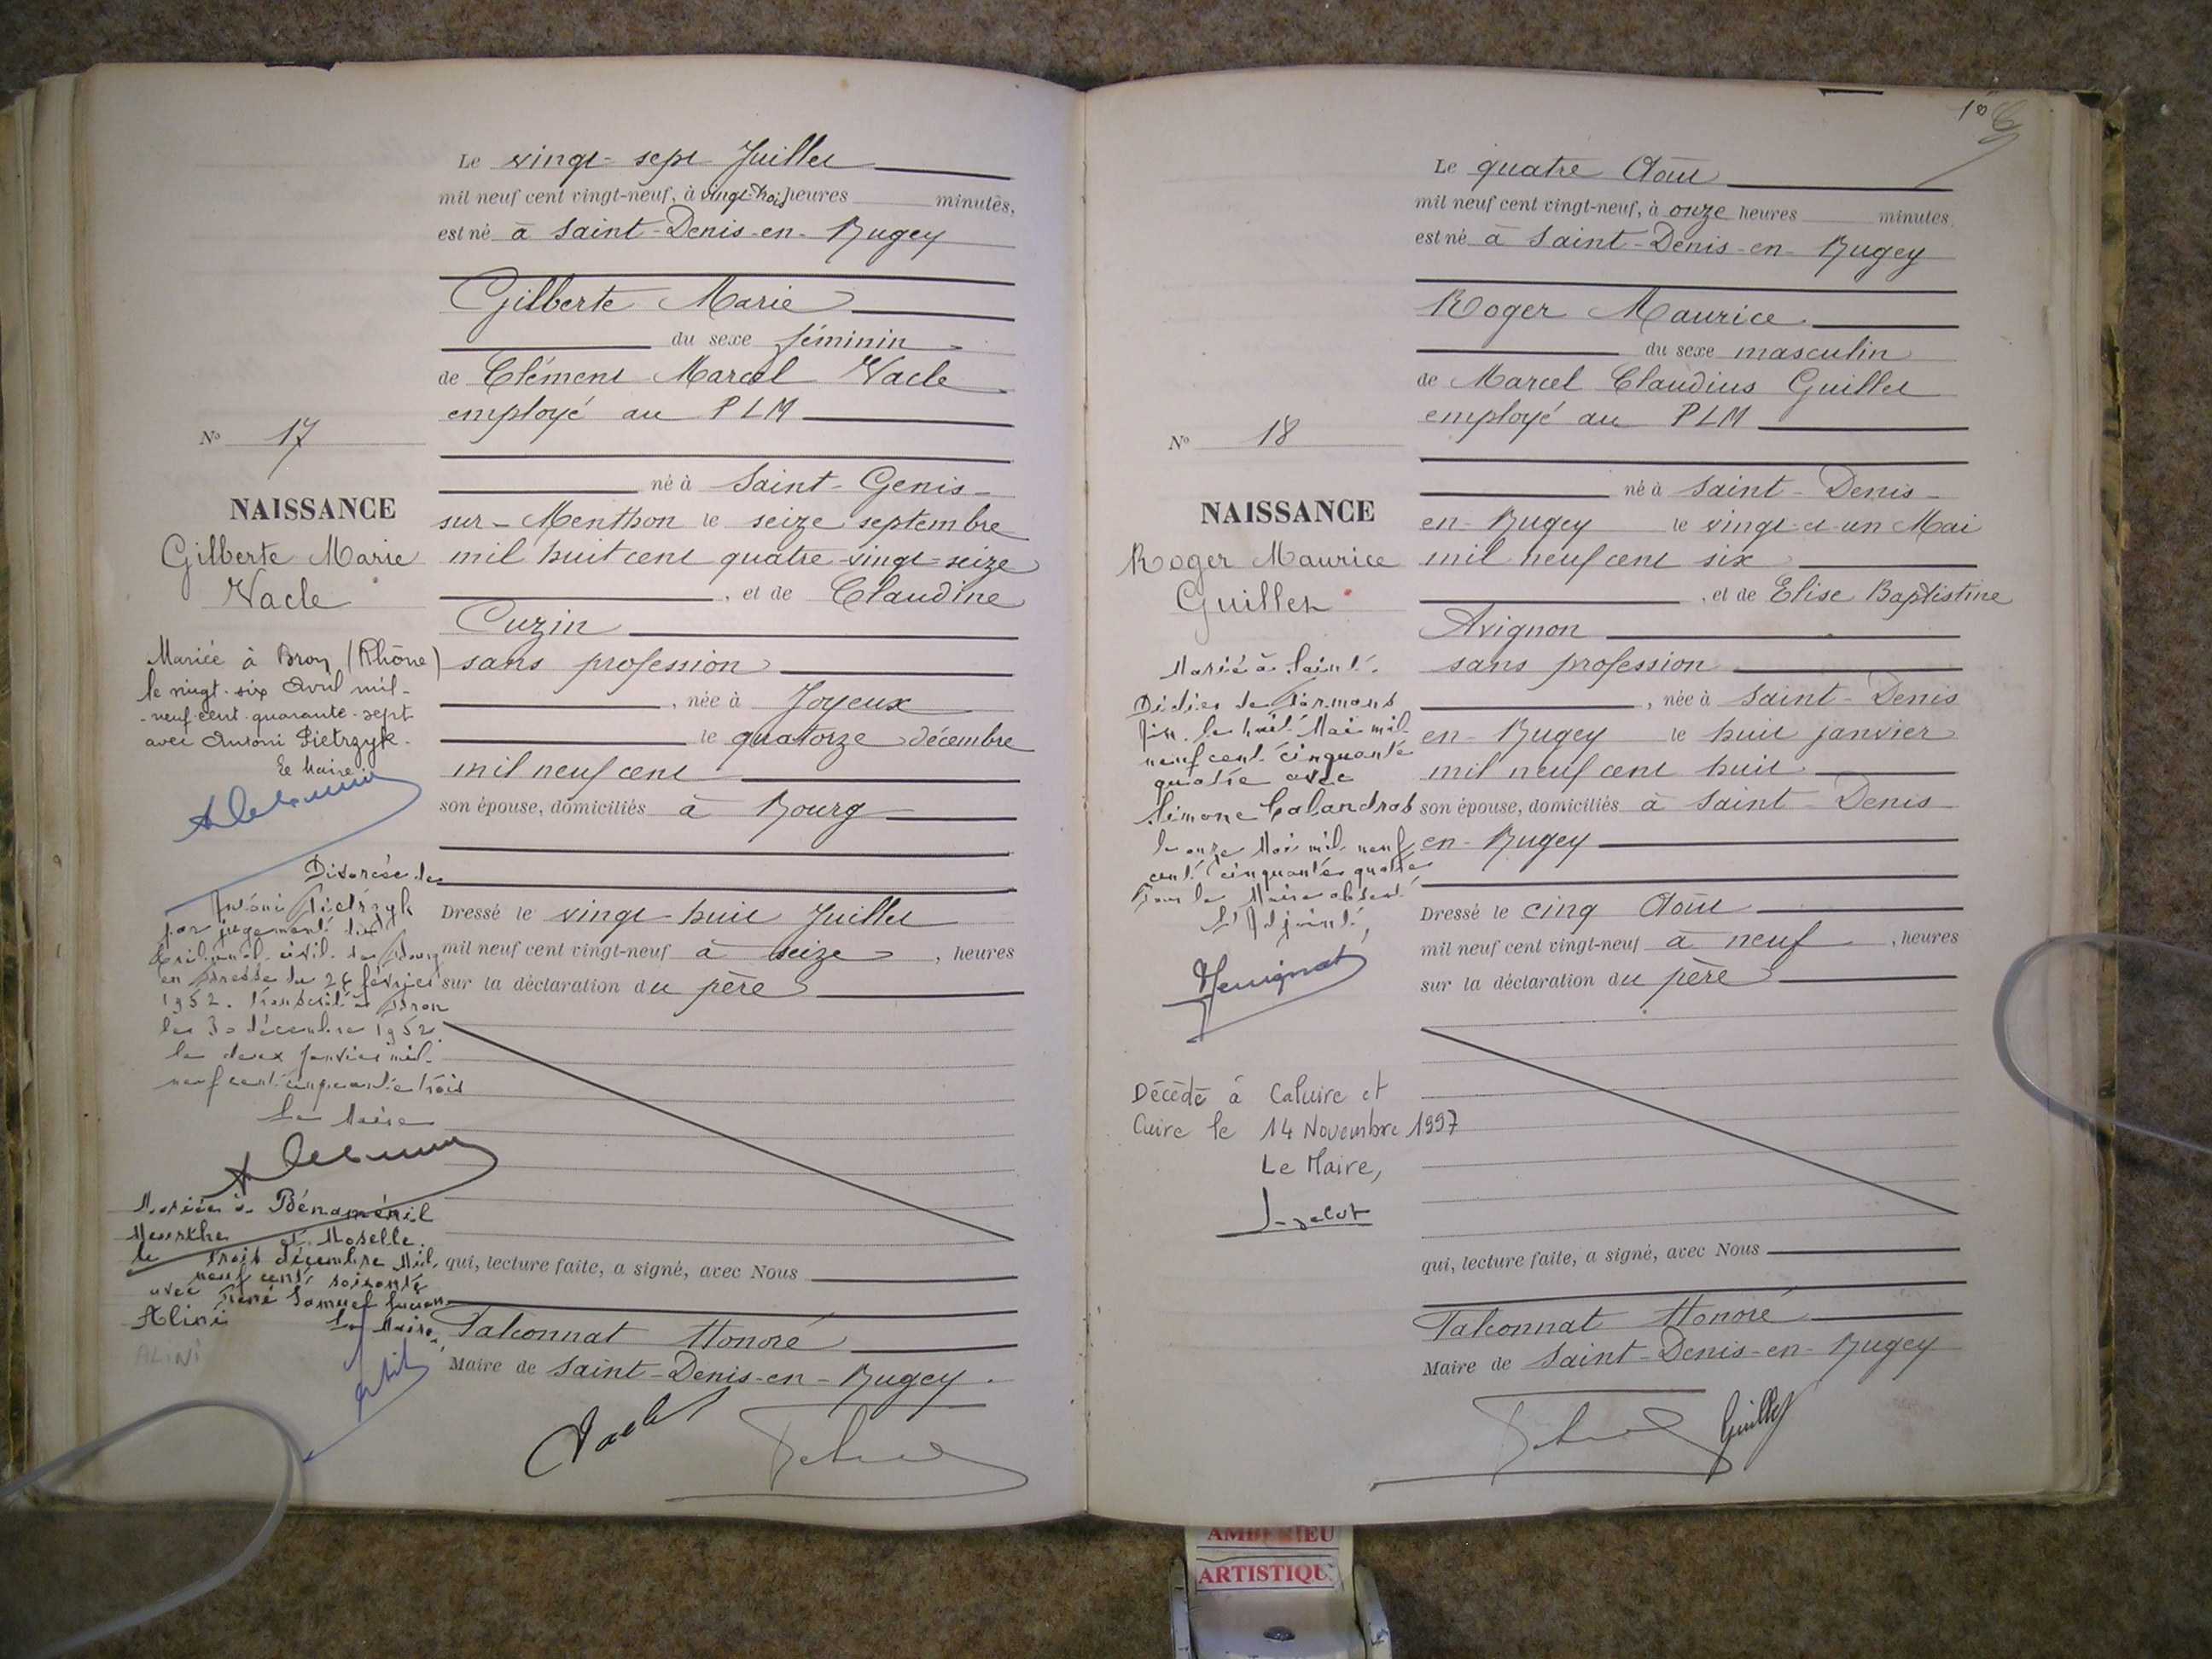 Le vingt-sept Juillet
mil neuf cent vingt-neuf, à vingt-trois heures minutes,
est né à Saint-Denis-en-Bugey
Gilberte Marie
du sexe féminin
de Clément Marcel Vacle
employé au PLM
né à Saint-Genis-
sur-Menthon le seize septembre
mil huit cent quatre-vingt-seize
, et de Claudine
Cuzin
sans profession
, née à Joyeux
le quatorze décembre
mil neuf cent
son épouse, domiciliés à Bourg
Dressé le vingt-huit Juillet
mil neuf cent vingt-neuf à seize , heures
sur la déclaration du père
qui, lecture faite, a signé, avec Nous
Falconnat Honoré
Maire de Saint-Denis-en-Bugey.
Vacle
No 17
NAISSANCE
Gilberte Marie
Vacle
Mariée à Bron (Rhône)
le vingt-six Avril mil-
-neuf-cent-quarante-sept
avec Antoni Pietrzyk.
Le Maire
Divorcée de
Antoni Pietrzyk
par jugement du
tribunal civil de Bourg
en Bresse du 26 février
1952. Transcrit à Bron
le 30 décembre 1952.
le deux Janvier mil-
neuf cent cinquante trois
Le Maire
Mariée à Bénaménil
Meurthe et Moselle
le trois décembre Mil
neuf cent soixante
avec René Samuel Lucien
Alini Le Maire,
ALINI
18
Le quatre Août
mil neuf cent vingt-neuf, à onze heures minutes,
est né à Saint-Denis-en-Bugey
Roger Maurice
du sexe masculin
de Marcel Claudius Guillet
employé au PLM
né à Saint-Denis-
en-Bugey le vingt-et-un Mai
mil neuf cent six
, et de Elise Baptistine
Avignon
sans profession
, née à Saint-Denis
en-Bugey le huit janvier
mil neuf cent huit
son épouse, domiciliés à Saint-Denis
en-Bugey
Dressé le cinq Août
mil neuf cent vingt-neuf à neuf , heures
sur la déclaration du père
qui, lecture faite, a signé, avec Nous
Falconnat Honoré
Maire de Saint-Denis-en-Bugey
Guillet
No 18
NAISSANCE
Roger Maurice
Guillet
Marié à Saint-
Didier de Formans
Ain le huit Mai mil-
neuf cent cinquante
quatre avec
Simone Calandras
le onze Mai mil neuf
cent cinquante quatre
Pour le Maire absent
L'Adjoint,
Décédé à Caluire et
Cuire le 14 Novembre 1997
Le Maire,
AMBERIEU
ARTISTIQUE